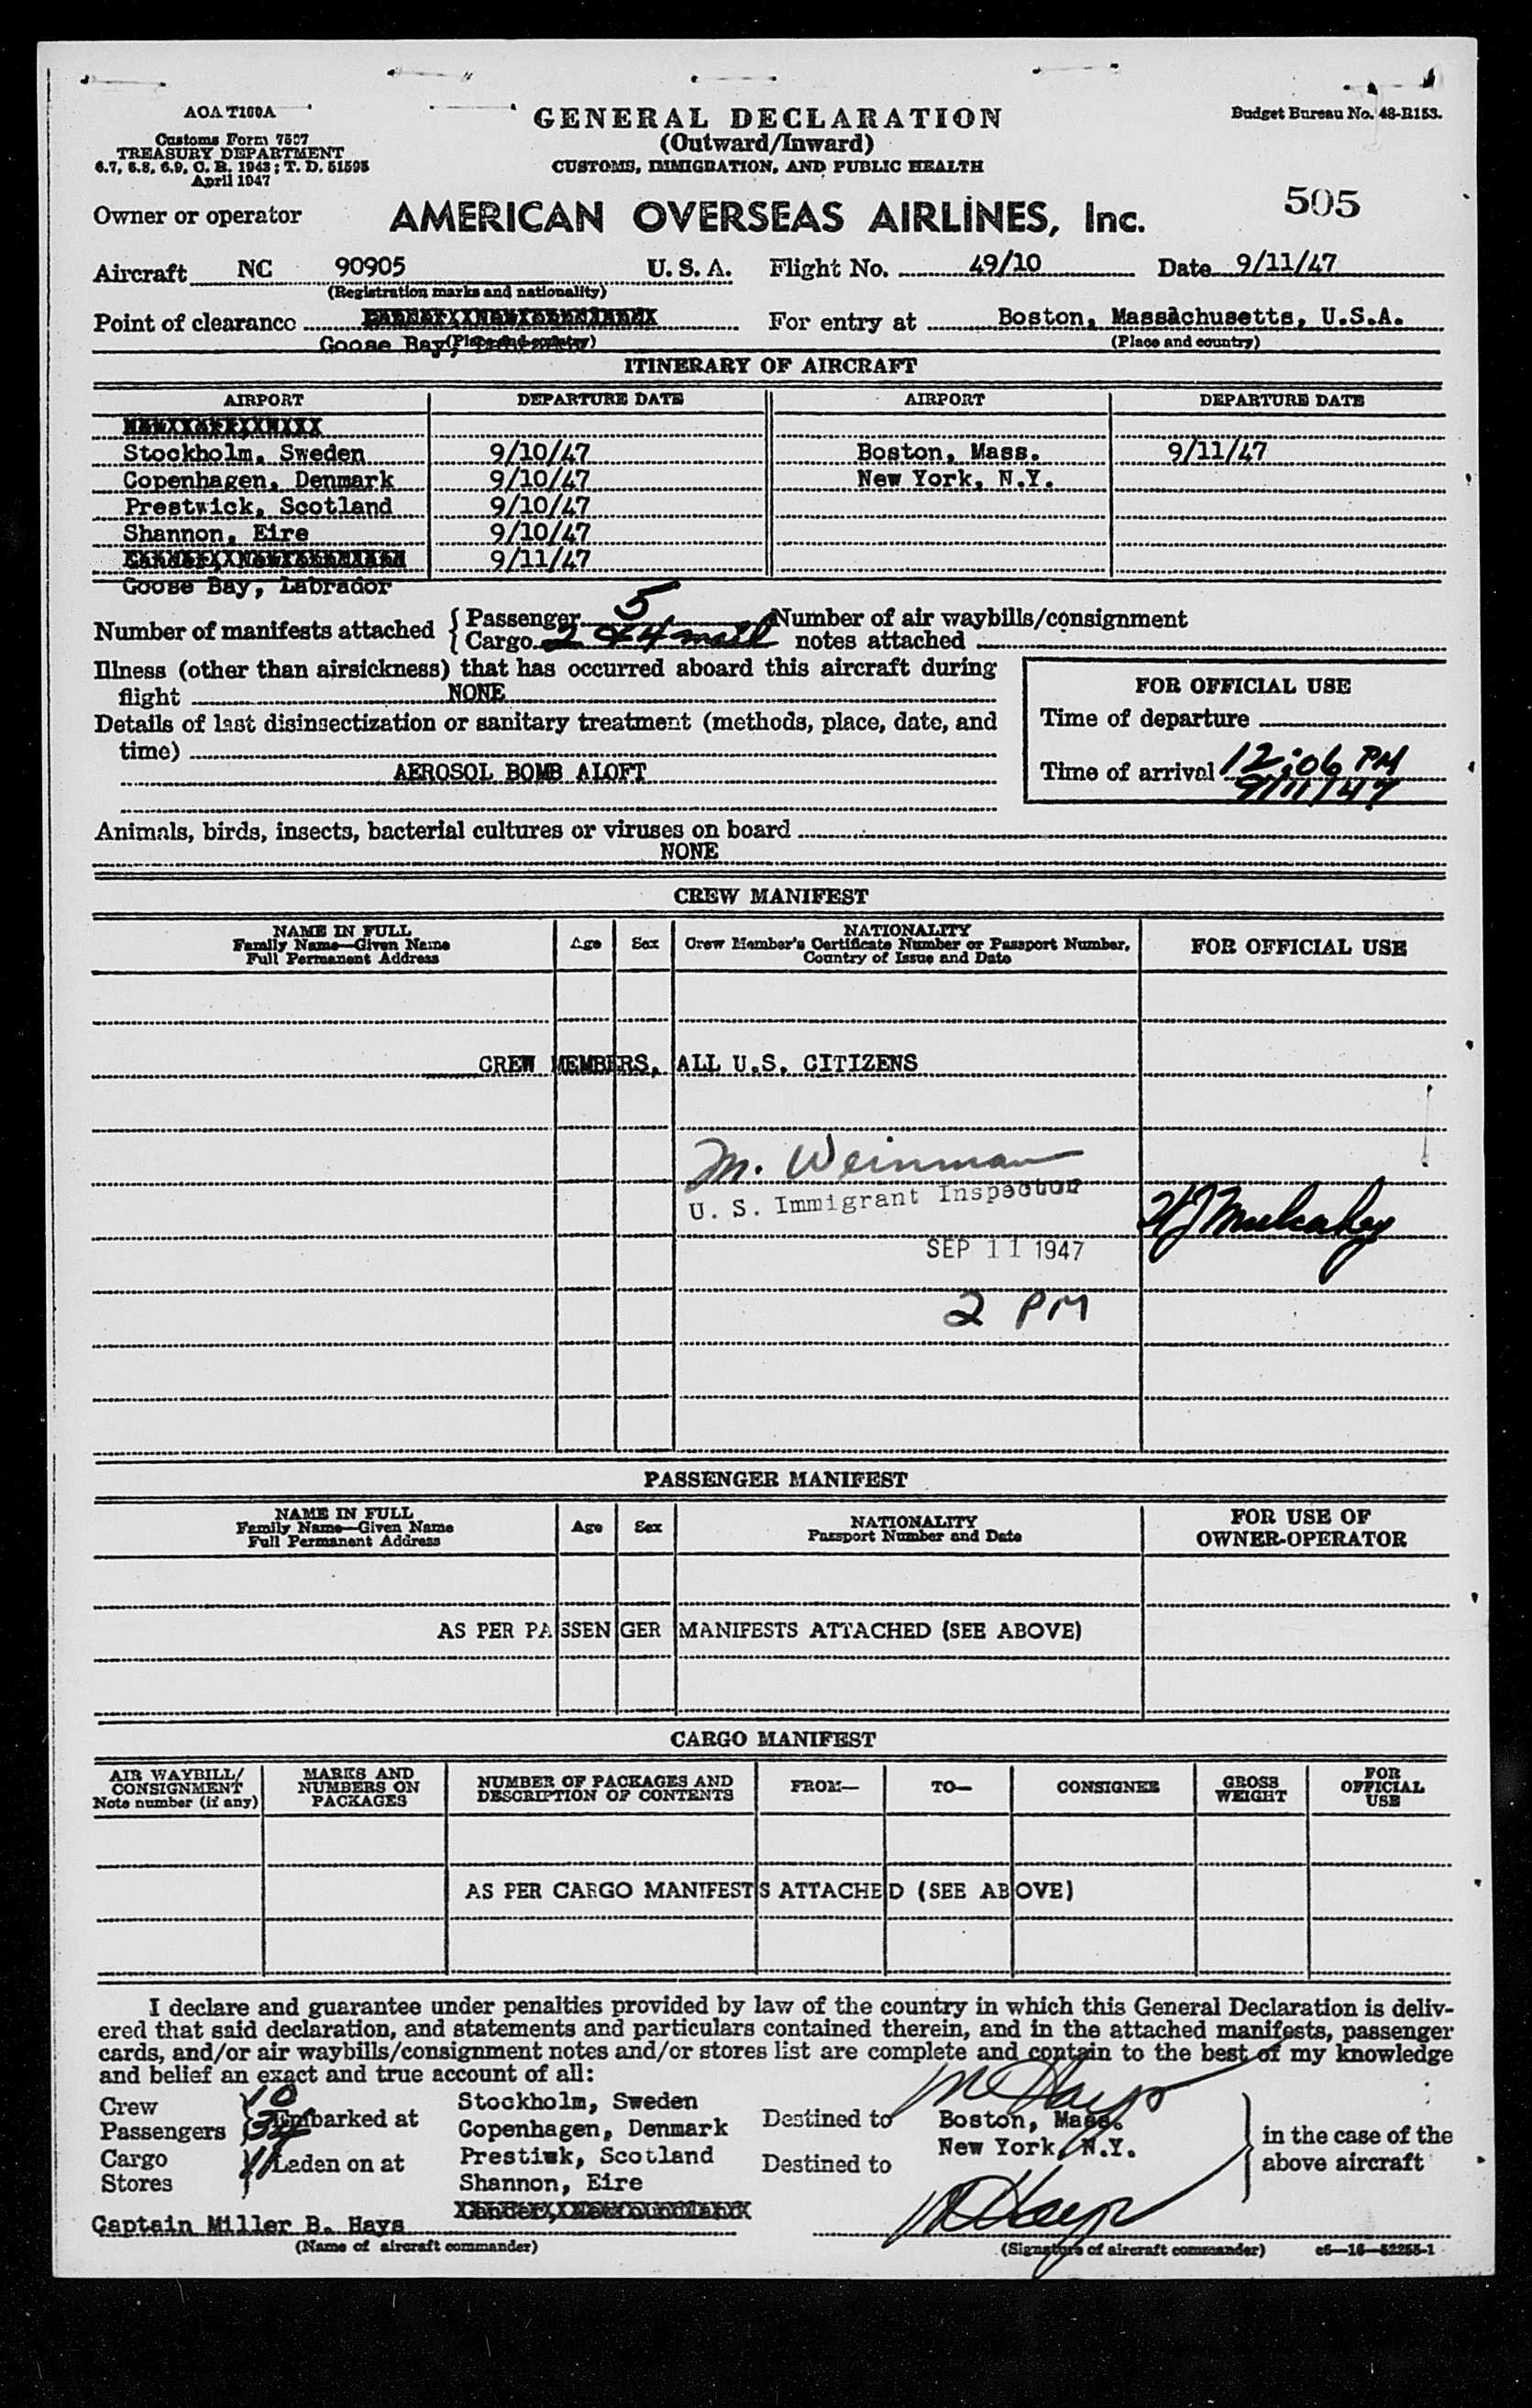 AOA T100A
GENERAL DECLARATION
Budget Bureau No. 48-R153.
Customs Form 7507
(Outward/Inward)
TREASURY DEPARTMENT
6.7, 6.8, 6.9, C. R. 1943; T. D. 51595
CUSTOMS, IMMIGRATION, AND PUBLIC HEALTH
April 1947
505
Owner or operator AMERICAN OVERSEAS AIRLINES, Inc.
Aircraft NC 90905 U. S. A. Flight No. 49/10 Date 9/11/47
(Registration marks and nationality)
Point of clearance For entry at Boston, Massachusetts, U.S.A.
Goose Bay, (Place and country) (Place and country)
ITINERARY OF AIRCRAFT
AIRPORT DEPARTURE DATE AIRPORT DEPARTURE DATE
Stockholm, Sweden 9/10/47 Boston, Mass. 9/11/47
Copenhagen, Denmark 9/10/47 New York, N.Y.
Prestwick, Scotland 9/10/47
Shannon, Eire 9/10/47
9/11/47
Goose Bay, Labrador
Number of manifests attached { Passenger 5 Number of air waybills/consignment
Cargo 2 & 4 mail notes attached
Illness (other than airsickness) that has occurred aboard this aircraft during
flight NONE
Details of last disinsectization or sanitary treatment (methods, place, date, and
time)
AEROSOL BOMB ALOFT
FOR OFFICIAL USE
Time of departure
Time of arrival 12:06 PM
9/11/47
Animals, birds, insects, bacterial cultures or viruses on board
NONE
CREW MANIFEST
NAME IN FULL
Family Name—Given Name
Full Permanent Address
Age
Sex
NATIONALITY
Crew Member's Certificate Number or Passport Number,
Country of Issue and Date
FOR OFFICIAL USE
CREW MEMBERS, ALL U.S. CITIZENS
M. Weinman
U. S. Immigrant Inspector
HJ Mulcahey
SEP 11 1947
2 PM
PASSENGER MANIFEST
NAME IN FULL
Family Name—Given Name
Full Permanent Address
Age
Sex
NATIONALITY
Passport Number and Date
FOR USE OF
OWNER-OPERATOR
AS PER PASSENGER MANIFESTS ATTACHED (SEE ABOVE)
CARGO MANIFEST
AIR WAYBILL/
CONSIGNMENT
Note number (if any)
MARKS AND
NUMBERS ON
PACKAGES
NUMBER OF PACKAGES AND
DESCRIPTION OF CONTENTS
FROM—
TO—
CONSIGNEE
GROSS
WEIGHT
FOR
OFFICIAL
USE
AS PER CARGO MANIFESTS ATTACHED (SEE ABOVE)
I declare and guarantee under penalties provided by law of the country in which this General Declaration is deliv-
ered that said declaration, and statements and particulars contained therein, and in the attached manifests, passenger
cards, and/or air waybills/consignment notes and/or stores list are complete and contain to the best of my knowledge
and belief an exact and true account of all:
Crew
Passengers
Cargo
Stores
Embarked at
Laden on at
Stockholm, Sweden
Copenhagen, Denmark
Prestiwk, Scotland
Shannon, Eire
Destined to
Destined to
Boston, Mass.
New York, N.Y.
in the case of the
above aircraft
Captain Miller B. Hays
(Name of aircraft commander)
M Hays
(Signature of aircraft commander) c6—16—52255-1